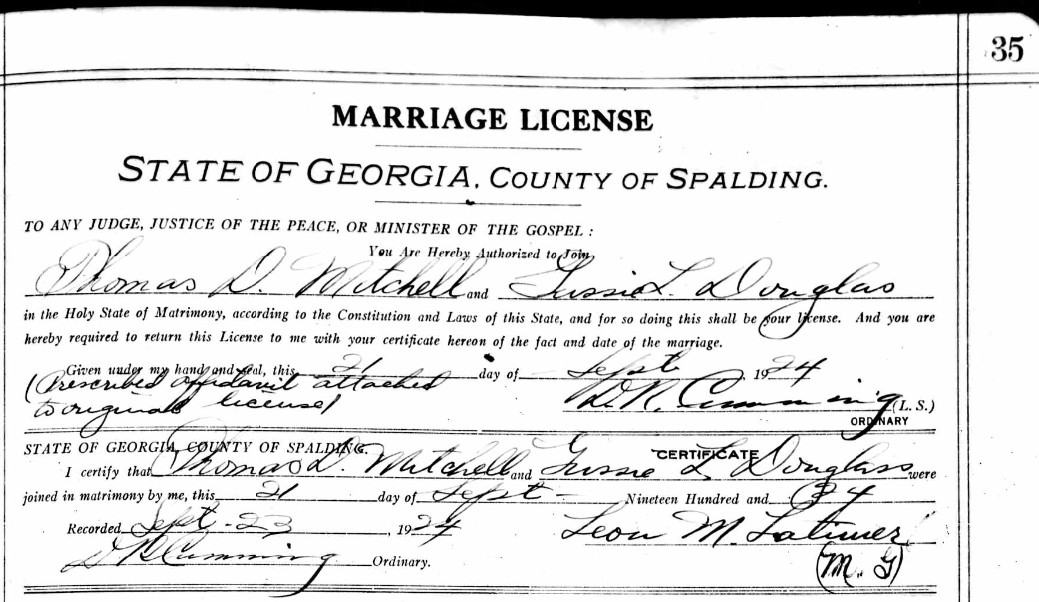 35
MARRIAGE LICENSE
STATE OF GEORGIA, COUNTY OF SPALDING.
TO ANY JUDGE, JUSTICE OF THE PEACE, OR MINISTER OF THE GOSPEL :
You Are Hereby Authorized to Join
Thomas D. Mitchell and Gussie L. Douglas
in the Holy State of Matrimony, according to the Constitution and Laws of this State, and for so doing this shall be your license. And you are
hereby required to return this License to me with your certificate hereon of the fact and date of the marriage.
Given under my hand and seal, this 21 day of Sept 1924
(Prescribed affidavit attached
to original license)
D. R. Cumming (L. S.)
ORDINARY
STATE OF GEORGIA, COUNTY OF SPALDING. CERTIFICATE
I certify that Thomas D. Mitchell and Gussie L Douglass were
joined in matrimony by me, this 21 day of Sept Nineteen Hundred and 24
Recorded Sept - 23, 1924 Leon M. Latimer
D R Cumming Ordinary. (M. G)